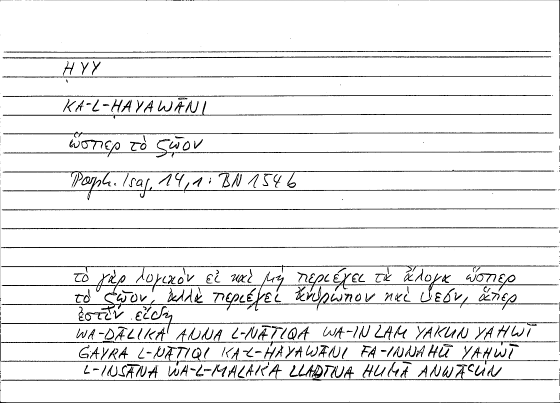 ḤYY
KA-L-ḤAYAWĀNI
ὥσπερ τὸ ζῷον
Porph. Isag. 14,1: BN 154b
τὸ γὰρ λογικὸν εἰ καὶ μὴ περιέχει τὰ ἄλογα ὥσπερ
τὸ ζῷον, ἀλλὰ περιέχει ἄνθρωπον καὶ θεόν, ἅπερ
ἐστὶν εἴδη
WA-ḎĀLIKA ANNA L-NĀṬIQA WA-IN LAM YAKUN YAḤWĪ
ĠAYRA L-NĀṬIQI KA-L-ḤAYAWĀNI FA-INNAHŪ YAḤWĪ
L-INSĀNA WA-L-MALAKA LLAḎĪNA HUMĀ ANWĀʿUN